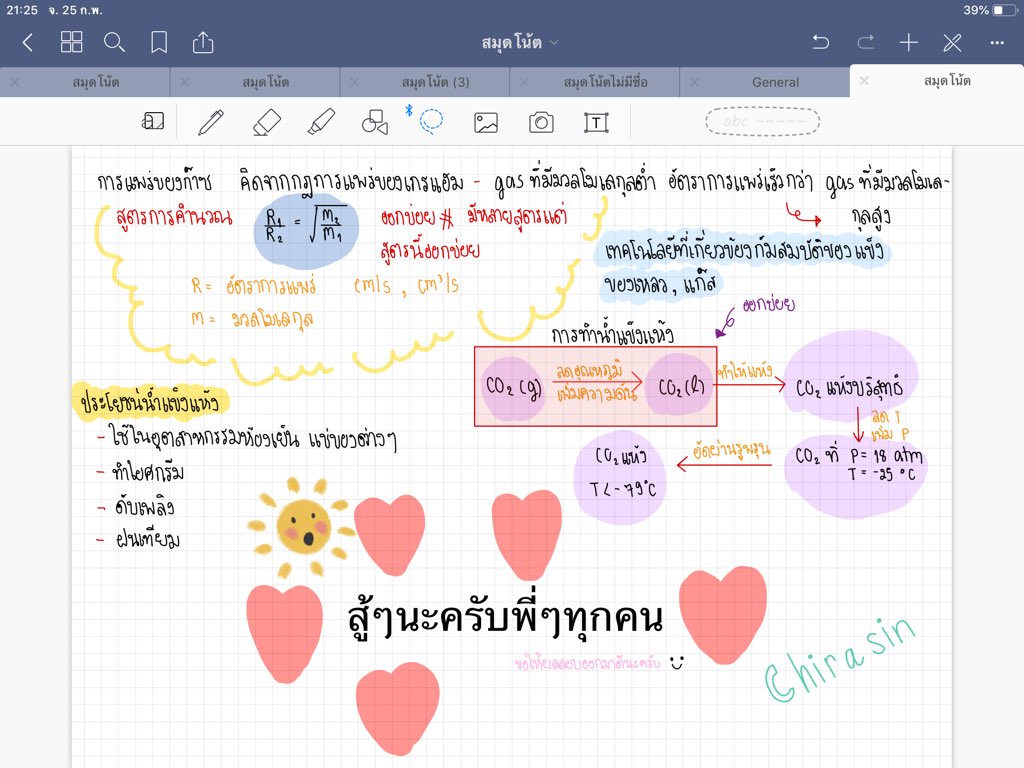 21:25 จ. 25 ก.พ.
39%
สมุดโน้ต
สมุดโน้ต
สมุดโน้ต
สมุดโน้ต (3)
สมุดโน้ตไม่มีชื่อ
General
สมุดโน้ต
abc
T
การแพร่ของก๊าซ คิดจากกฎการแพร่ของเกรแฮม - gas ที่มีมวลโมเลกุลต่ำ อัตราการแพร่เร็วกว่า gas ที่มีมวลโมเล-
กุลสูง
สูตรการคำนวณ R1/R2 = √M2/M1 ออกบ่อย # มีหลายสูตรแต่
สูตรนี้ออกบ่อย
R = อัตราการแพร่ cm/s , cm³/s
M = มวลโมเลกุล
เทคโนโลยีที่เกี่ยวข้องกับสมบัติของแข็ง
ของเหลว , แก๊ส
ออกบ่อย
การทำน้ำแข็งแห้ง
CO2 (g) ลดอุณหภูมิ
เพิ่มความดัน CO2 (l) ทำให้แห้ง CO2 แห้งบริสุทธิ์
ลด T
เพิ่ม P
CO2 ที่ P = 18 atm
T = -25 °C
อัดผ่านรูพรุน
CO2 แห้ง
T < -79°C
ประโยชน์น้ำแข็งแห้ง
- ใช้ในอุตสาหกรรมห้องเย็น แช่ของต่างๆ
- ทำไอศกรีม
- ดับเพลิง
- ฝนเทียม
สู้ๆนะครับพี่ๆทุกคน
ขอให้ผลสอบออกมาดีนะครับ
Chirasin